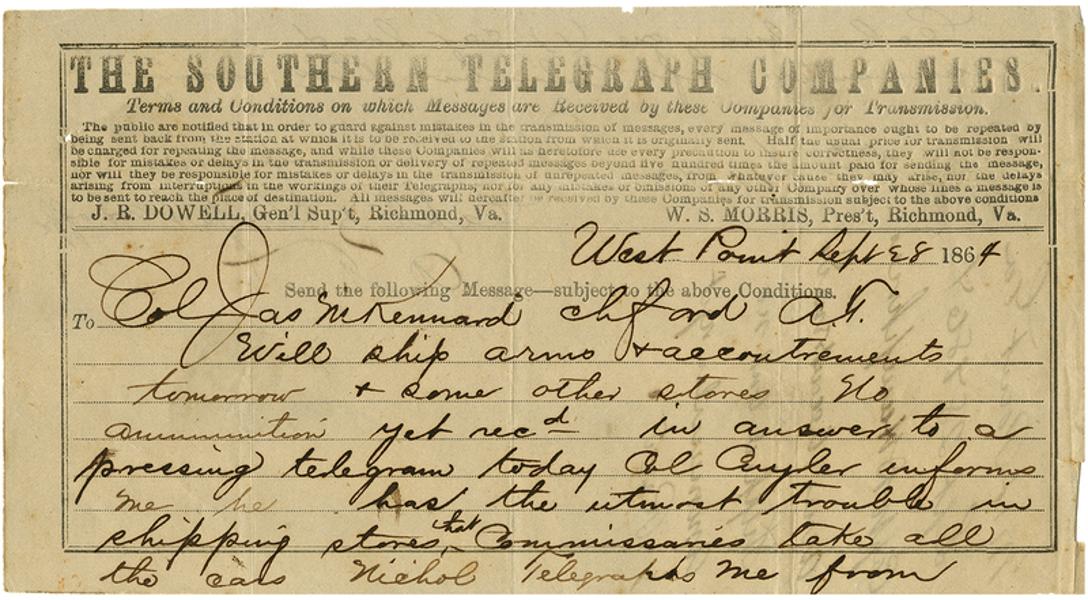 THE SOUTHERN TELEGRAPH COMPANIES.
Terms and Conditions on which Messages are Received by these Companies for Transmission.
The public are notified that in order to guard against mistakes in the transmission of messages, every message of importance ought to be repeated by
being sent back from the station at which it is to be received to the station from which it is originally sent. Half the usual price for transmission will
be charged for repeating the message, and while these Companies will as heretofore use every precaution to insure correctness, they will not be respon-
sible for mistakes or delays in the transmission or delivery of repeated messages beyond five hundred times the amount paid for sending the message,
nor will they be responsible for mistakes or delays in the transmission of unrepeated messages, from whatever cause they may arise, nor for delays
arising from interruptions in the workings of their Telegraphs, nor for any mistakes or omissions of any other Company over whose lines a message is
to be sent to reach the place of destination. All messages will hereafter be received by these Companies for transmission subject to the above conditions
J. R. DOWELL, Gen'l Sup't, Richmond, Va. W. S. MORRIS, Pres't, Richmond, Va.
West Point Sept 28 1864
Send the following Message—subject to the above Conditions.
To Col Jas M Kennard ch ord A.T.
Will ship arms & accoutrements
tomorrow & some other stores No
ammunition yet recd in answer to a
pressing telegram today Col Cuyler informs
me he has the utmost trouble in
shipping stores, that Commissaries take all
the cars Nichol Telegraphs me from